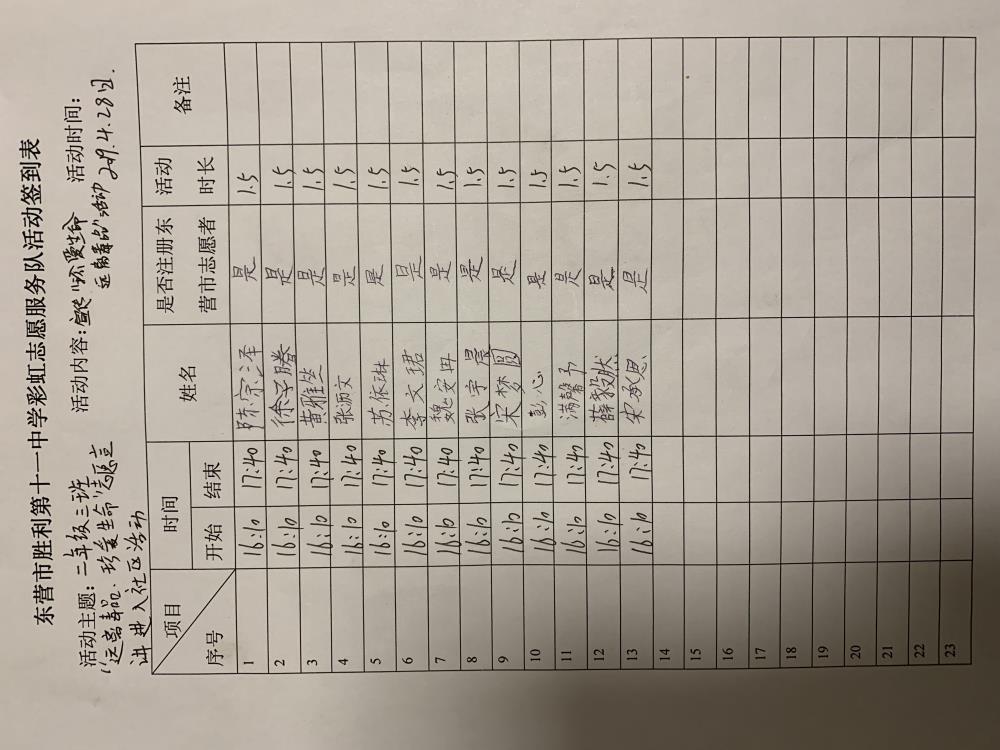 东营市胜利第十一中学彩虹志愿服务队活动签到表
活动主题：二年级三班 活动内容：宣传"珍爱生命 活动时间：
"远离毒品.珍爱生命"志愿宣 远离毒品"活动 2019.4.28日.
讲进入社区活动
项目 时间 姓名 是否注册东 活动 备注
序号 开始 结束 营市志愿者 时长
1 16:10 17:40 陈宗泽 是 1.5
2 16:10 17:40 徐子腾 是 1.5
3 16:10 17:40 黄雅竺 是 1.5
4 16:10 17:40 张沥文 是 1.5
5 16:10 17:40 苏依琳 是 1.5
6 16:10 17:40 李文珺 是 1.5
7 16:10 17:40 魏安冉 是 1.5
8 16:10 17:40 张宇晨 是 1.5
9 16:10 17:40 宋梦圆 是 1.5
10 16:10 17:40 彭心 是 1.5
11 16:10 17:40 满馨予 是 1.5
12 16:10 17:40 薛毅然 是 1.5
13 16:10 17:40 宋承恩 是 1.5
14
15
16
17
18
19
20
21
22
23